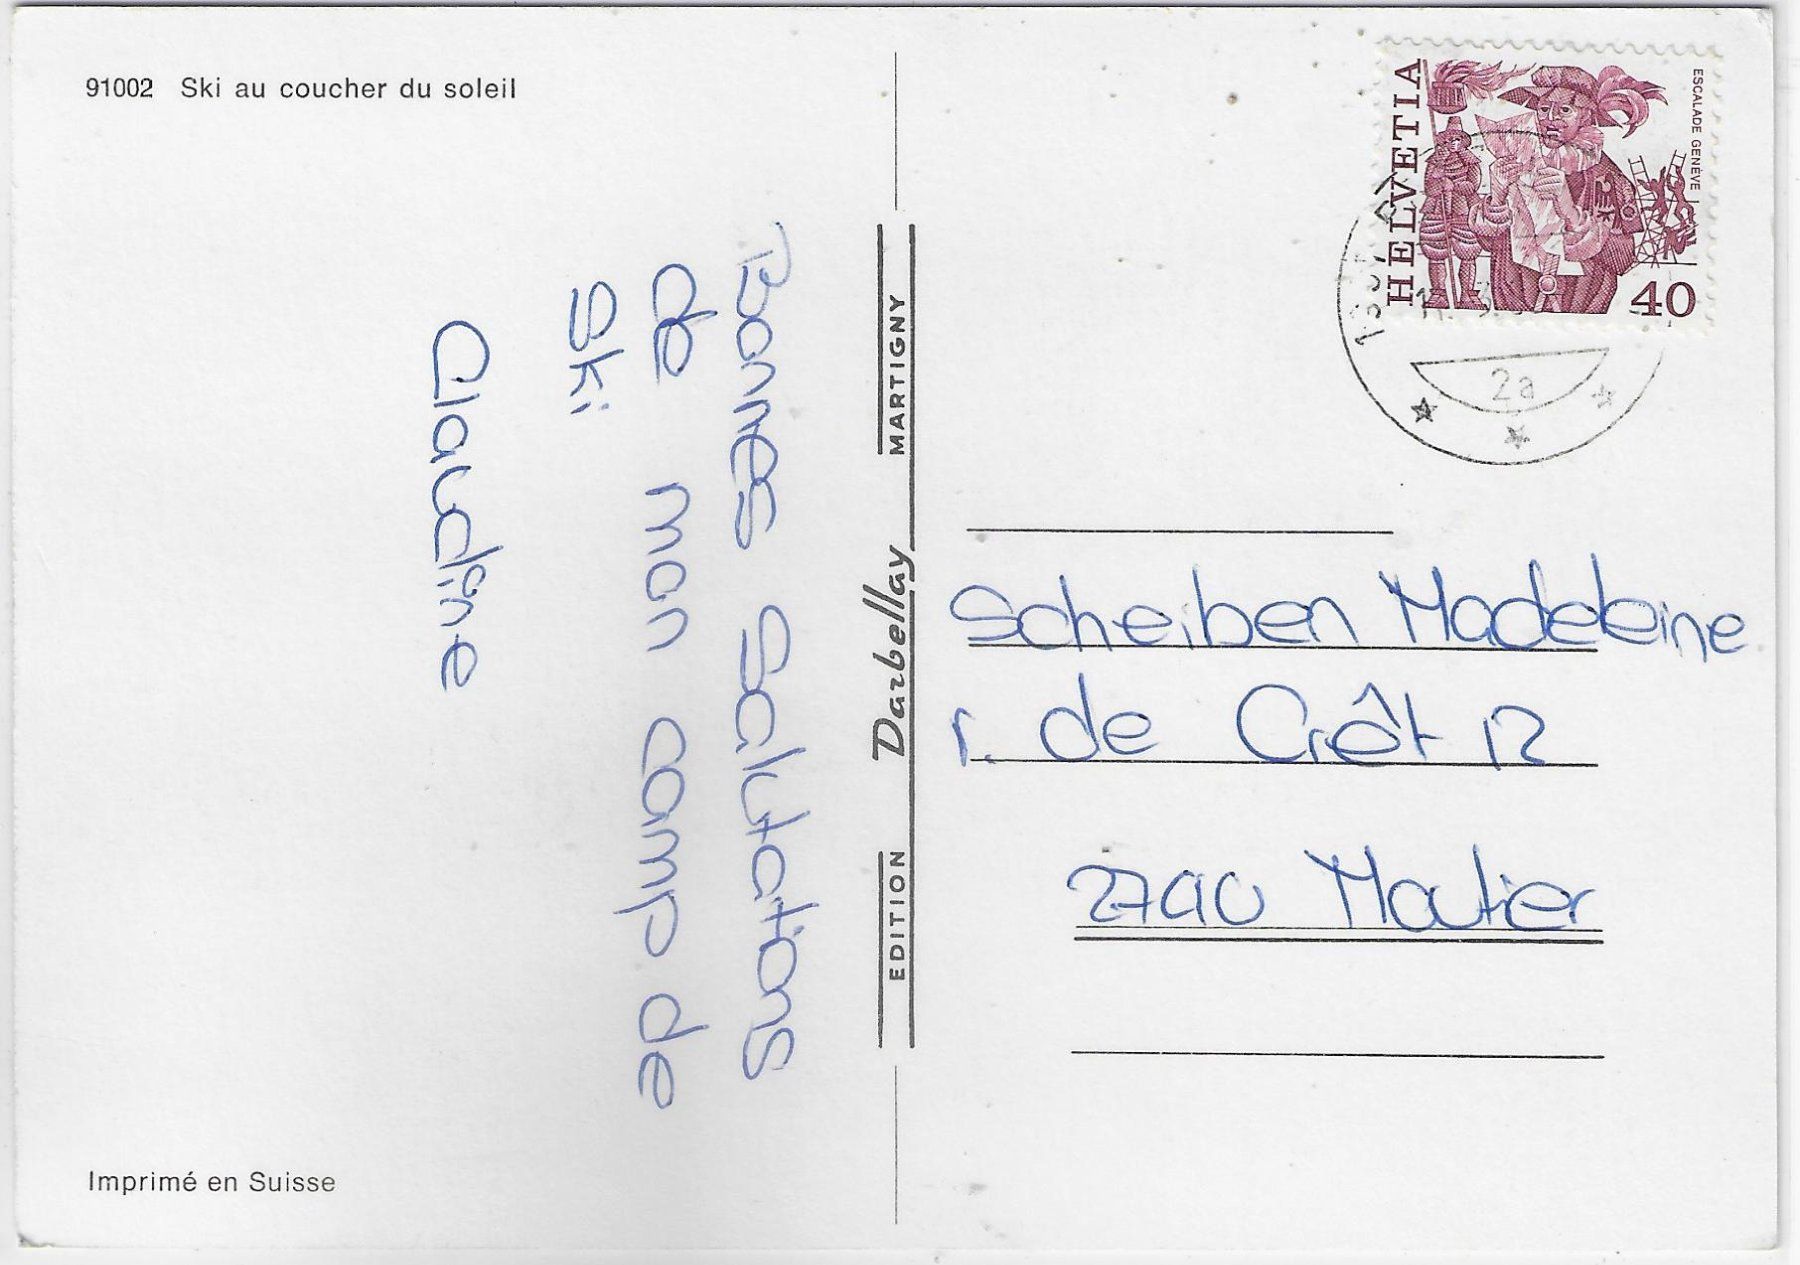 91002 Ski au coucher du soleil
Bonnes Salutations
de mon camp de
Ski
Claudine
Imprimé en Suisse
EDITION Darbellay MARTIGNY
HELVETIA
ESCALADE GENÈVE
40
2a
Scheiben Madeleine
r. de Crêt 12
2740 Moutier